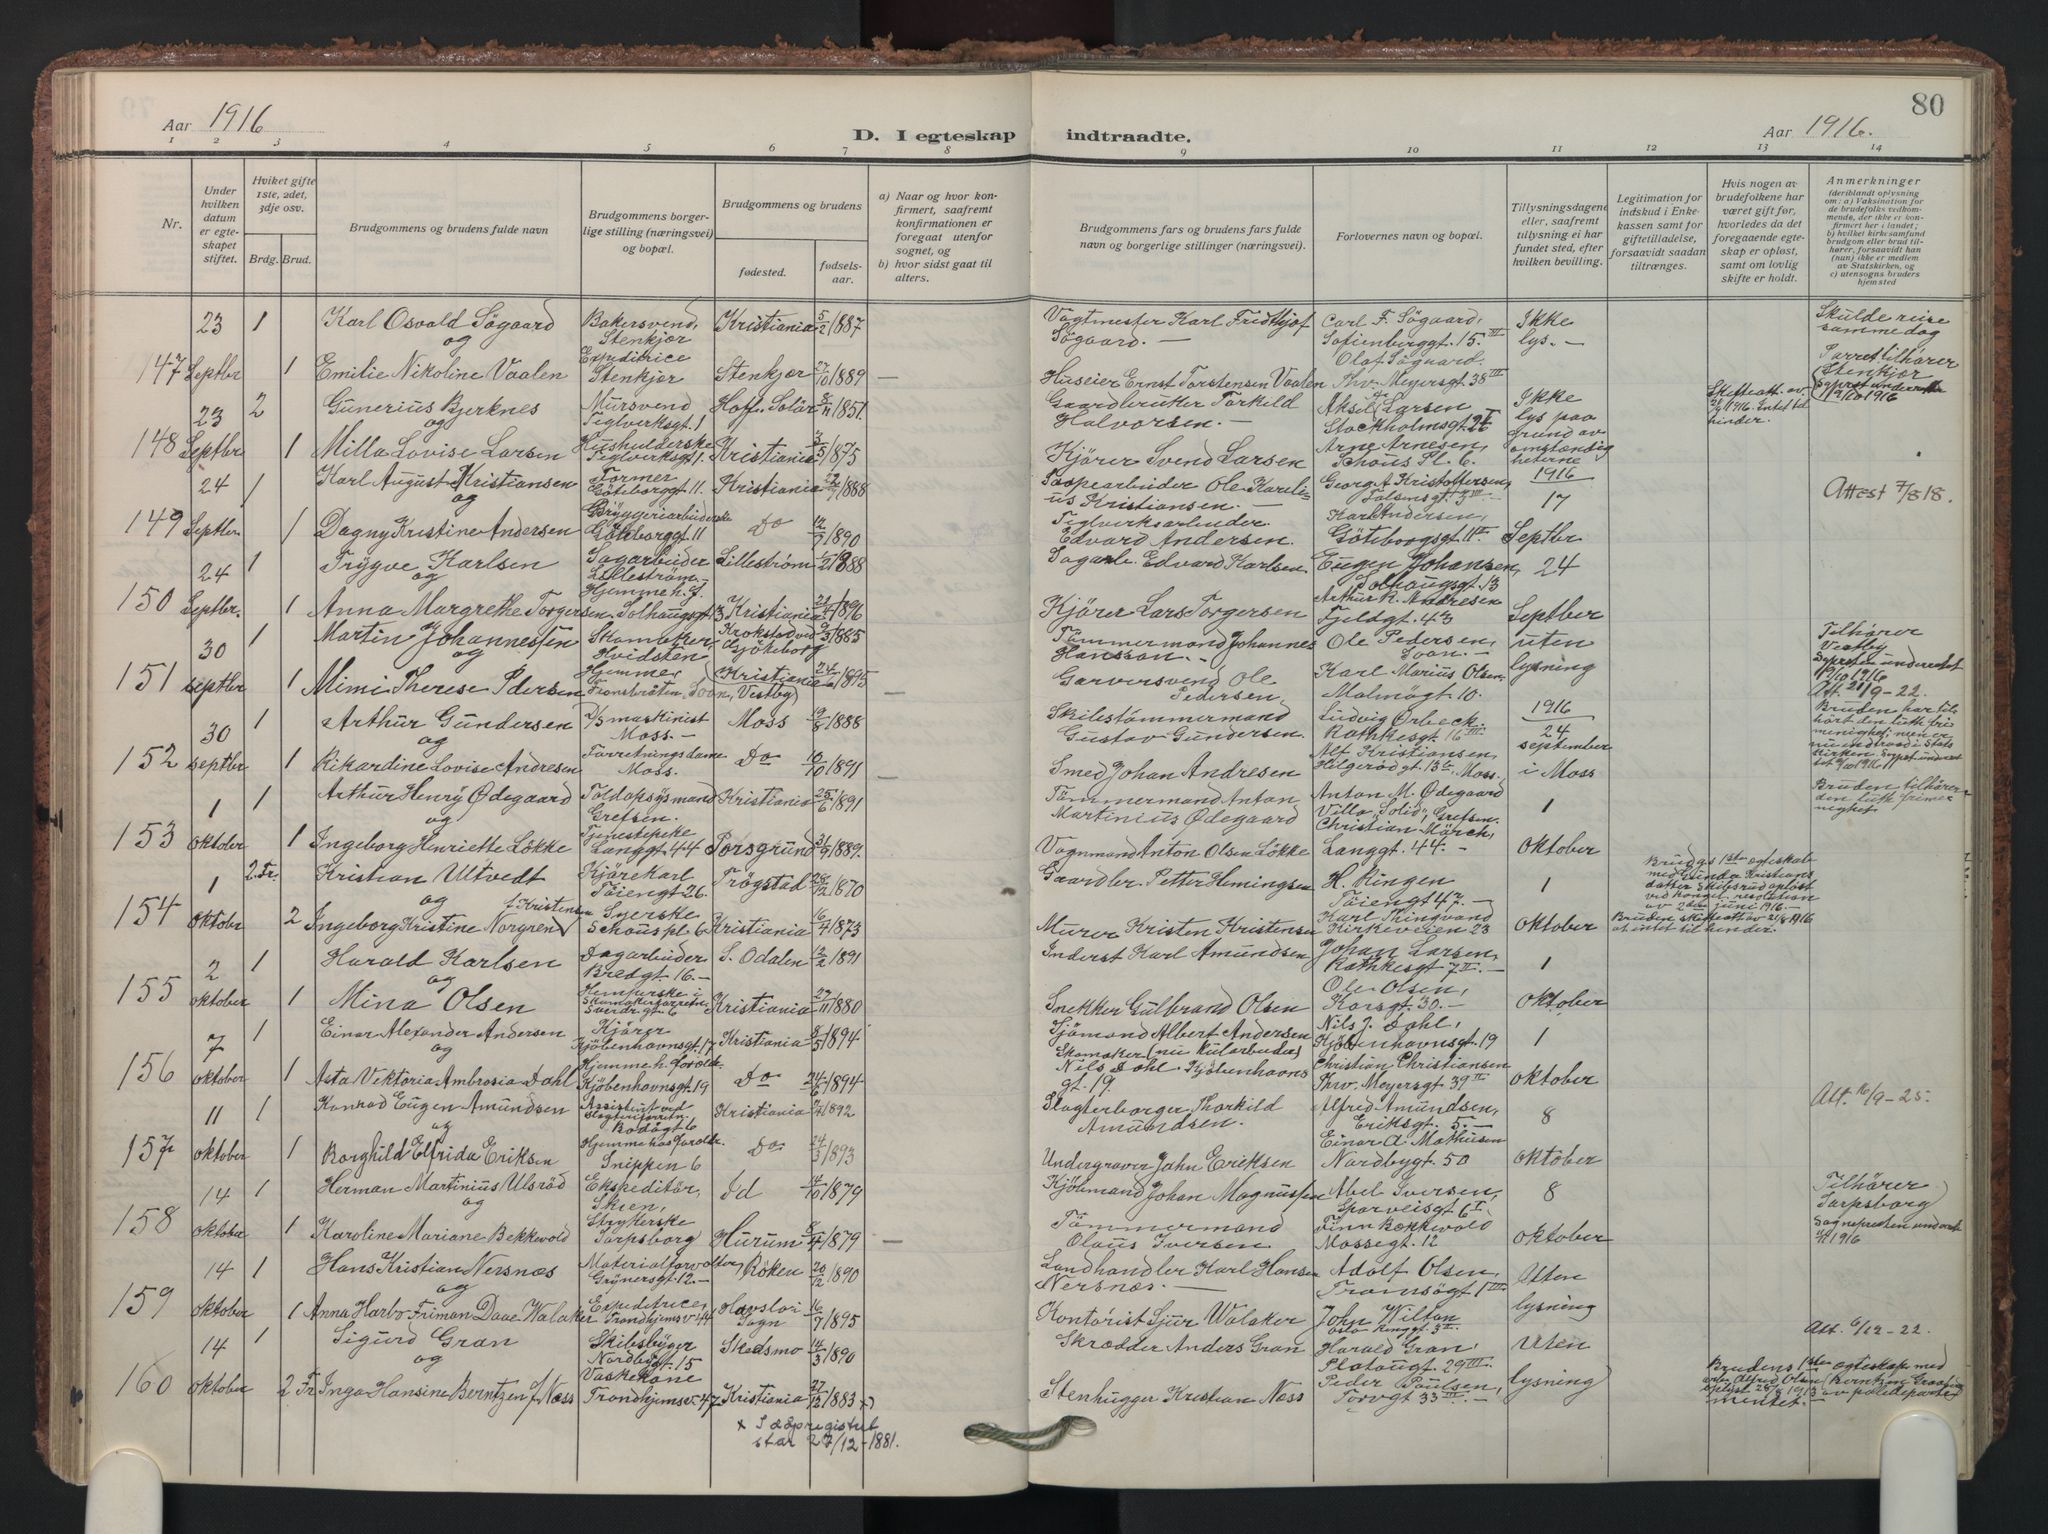 80
Aar 1916
D. I egteskap indtraadte.
Aar 1916.
1 2 3 4 5 6 7 8 9 10 11 12 13 14
Nr.
Under hvilken datum er egteskapet stiftet.
Hviket gifte 1ste, 2det, 3dje osv.
Brdg. Brud.
Brudgommens og brudens fulde navn
Brudgommens borgerlige stilling (næringsvei) og bopæl.
Brudgommens og brudens
fødested.
fødselsaar.
a) Naar og hvor konfirmert, saafremt konfirmationen er foregaat utenfor sognet, og
b) hvor sidst gaat til alters.
Brudgommens fars og brudens fars fulde navn og borgerlige stillinger (næringsvei).
Forlovernes navn og bopæl.
Tillysningsdagene eller, saafremt tillysning ei har fundet sted, efter hvilken bevilling.
Legitimation for indskud i Enkekassen samt for giftetilladelse, forsaavidt saadan tiltrænges.
Hvis nogen av brudefolkene har været gift før, hvorledes da det foregaaende egteskap er opløst, samt om lovlig skifte er holdt.
Anmerkninger
(deriblandt oplysning om: a) Vaksination for de brudefolks vedkommende, der ikke er konfirmert her i landet; b) hvilket kirkesamfund brudgom eller brud tilhører, forsaavidt han (hun) ikke er medlem av Statskirken, og c) utensogns bruders hjemsted
147 23 Septbr 1 Karl Osvald Sögaard Bakersvend, Stenkjær Kristiania 5/2 1887 Vogtmester Karl Fridtjof Sögaard. Carl F. Sögaard, Sofienberggt. 15 III Ikke lys. Skulde reise samme dag
og
1 Emilie Nikoline Vaalen Expeditrice Stenkjær Stenkjær 27/10 1889 Huseier Ernst Torstensen Vaalen Olaf Sögaard Thv. Meyersgt 38 III
148 23 Septbr 2 Gunerius Bjerknes Mursvend Teglverksgt. 1 Hoff, Solör 8/11 1851. Gaardbruker Torkild Halvorsen. Aksel Larsen Stockholmsgt. Ikke lys paa grund av omstændigheterne
og
1 Milla Lovise Larsen Husholderske Teglverksgt 1. Kristiania 3/5 1875 Kjörer Svend Larsen Arne Arnesen, Schous Pl. 6.
149 24 Septbr. 1 Karl August Kristiansen Former Göteborggt 11. Kristiania 1888 Ole Kareli- us Kristiansen. Georg A Kristoffersen, 1916 17 Septbr Attest 7/8 18.
og
1 Dagny Kristine Andersen Bryggeriarbeiderske Göteborggt 11 Do 12/7 1890 Teglverksarbeider Edvard Andersen. Karl Andersen, Göteborgsgt. 11 II
150 24 Septbr. 1 Trygve Karlsen Sagarbeider Lilleström Lilleström 1888 Sagarb. Edvard Karlsen Eugen Johansen, Solhaugsgt. 13 24 Septber
og
1 Anna Margrethe Torgersen Hjemme h. f. Solhaugsgt 3 Kristiania 1896 Kjörer Lars Torgersen Arthur R. Andresen Fjeldgt. 43
151 30 septbr 1 Martin Johannessen Skomaker, Hvidsten Krokstad ved Göteborg 9/3 1885 Tömmermand Johannes Hansson. Ole Pedersen, Soon. uten lysning Tilhörer Vestby
og
1 Mimi Therese Pedersen Hjemme, Soon, Vestby Kristiania 1895 Garversvend Ole Pedersen Karl Marius Olsen Malmögt 10. Att. 28/9-22.
152 30 septbr 1 Arthur Gundersen D/S maskinist Moss. Moss 19/8 1888 Skibstömmermand Gustav Gundersen. Ludvig Orbeck. Rathkesgt 16 III 1916 24 september i Moss Bruden har tilhört den luth fri menighet; men er nu indtraad i Statskirken.
og
1 Rikardine Lovise Andresen Forretningsdame Moss. Do 10/10 1891 Smed Johan Andresen Alf Kristiansen, Moss.
153 1 oktober 1 Arthur Henry Ødegaard Toldopsynsmand Grefsen. Kristiania 25/6 1891 Tömmermand Anton Martinius Ødegaard Anton M. Ødegaard Villa "Solid", Grefsen. 1 Oktober Bruden tilhörer den luth frimenighet.
og
1 Ingeborg Henriette Lökke Tjenestepike Langgt 44 Porsgrund 1889. Vognmand Anton Olsen Lökke Christian Mörch, Langgt. 44.
154 1 oktober 2. Fr. Kristian Ultvedt Kjörekarl Töiengt 26. Trögstad 28/12 1870 Gaardbr. Petter Hemingsen H. Ringen Töiengt 47. 1 Oktober
og
2 Ingeborg Kristine Norgren f. Kristensen Syerske Schous pl. 6 Kristiania 16/4 1873 Murer Kristen Kristensen Karl Thingvand Kirkeveien 23 Bruden skifteatt av 21/8 1916 at intet til hinder.
155 2 oktober 1 Harald Karlsen Dagarbeider Bredgt 16. S. Odalen 12/2 1891 Inderst Karl Amundsen Johan Larsen, Rathkesgt 7 II. 1 Oktober
og
1 Mina Olsen Kristiania 27/11 1880 Snekker Gulbrand Olsen Ole Olsen, Korsgt. 30.
156 7 oktober 1 Einar Alexander Andersen Kjörer Kjöbenhavnsgt. 17 Kristiania 8/5 1894 Sjömand Albert Andersen Nils J. Dahl, Kjöbenhavnsgt 19 1 oktober
og
1 Asta Vektoria Ambrosia Dahl Hjemme h. forældr. Kjöbenhavnsgt. 19 Do 24/6 1894 Skomaker (nu kularbeider) Nils Dahl. Kjöbenhavnsgt. 19 Christian Christiansen Thv. Meyersgt 39 II
157 11 oktober 1 Konrad Eugen Amundsen Assistent ved slagterforretn. Bodögt 6 Kristiania 1892 Slagterborger Thorkild Amundsen. Alfred Amundsen, Eriksgt. 5. 8 oktober Att. 16/9-25.
og
1 Borghild Elfrida Eriksen Hjemme hos foreldr. Snippen 6 Do 24/3 1893 Undergraver John Eriksen Einar A. Mathisen Nordbygt. 50
158 14 oktober 1 Herman Martinius Ulsröd Ekspeditör, Skien, Id 14/10 1879 Kjöbmand Johan Magnussen Abel Iversen, Sparveisgt 6 I 8 oktober Tilhörer Sarpsborg
og
1 Karoline Mariane Bekkevold Strykerske Sarpsborg Hurum 8/4 1879 Tömmermand Olaus Iversen Finn Bækkevold Mossegt. 12
159 14 oktober 1 Hans Kristian Nersnæs Materialforvalter, Grünersgt. 12. Röken 20/12 1890 Landhandler Karl Hansen Nersnæs. Adolf Olsen, Tromsögt 1 III Uten lysning
og
1 Anna Harbo Friman Daae Walaker Expeditrice, Trondhjemsv. 44 Havsloi Sogn 16/7 1895 Kontorist Sjur Walaker John Wiltan
160 14 oktober 1 Sigurd Gran Skibsbygger Nordbygt. 15 Skedsmo 14/3 1890 Skrædder Anders Gran Harald Gran, Platougt. 29 III. Uten lysning Att. 6/12-22.
og
2 Fr. Inga Hansine Berntzen f. Næss Vaskekone Trondhjemsv. 47 Kristiania 27/12 1883 x) Stenhugger Kristian Næss Peder Poulsen, Torvgt 33 III. Brudens 1ste egteskap med
x I dåpregistret
står 27/12-1881.